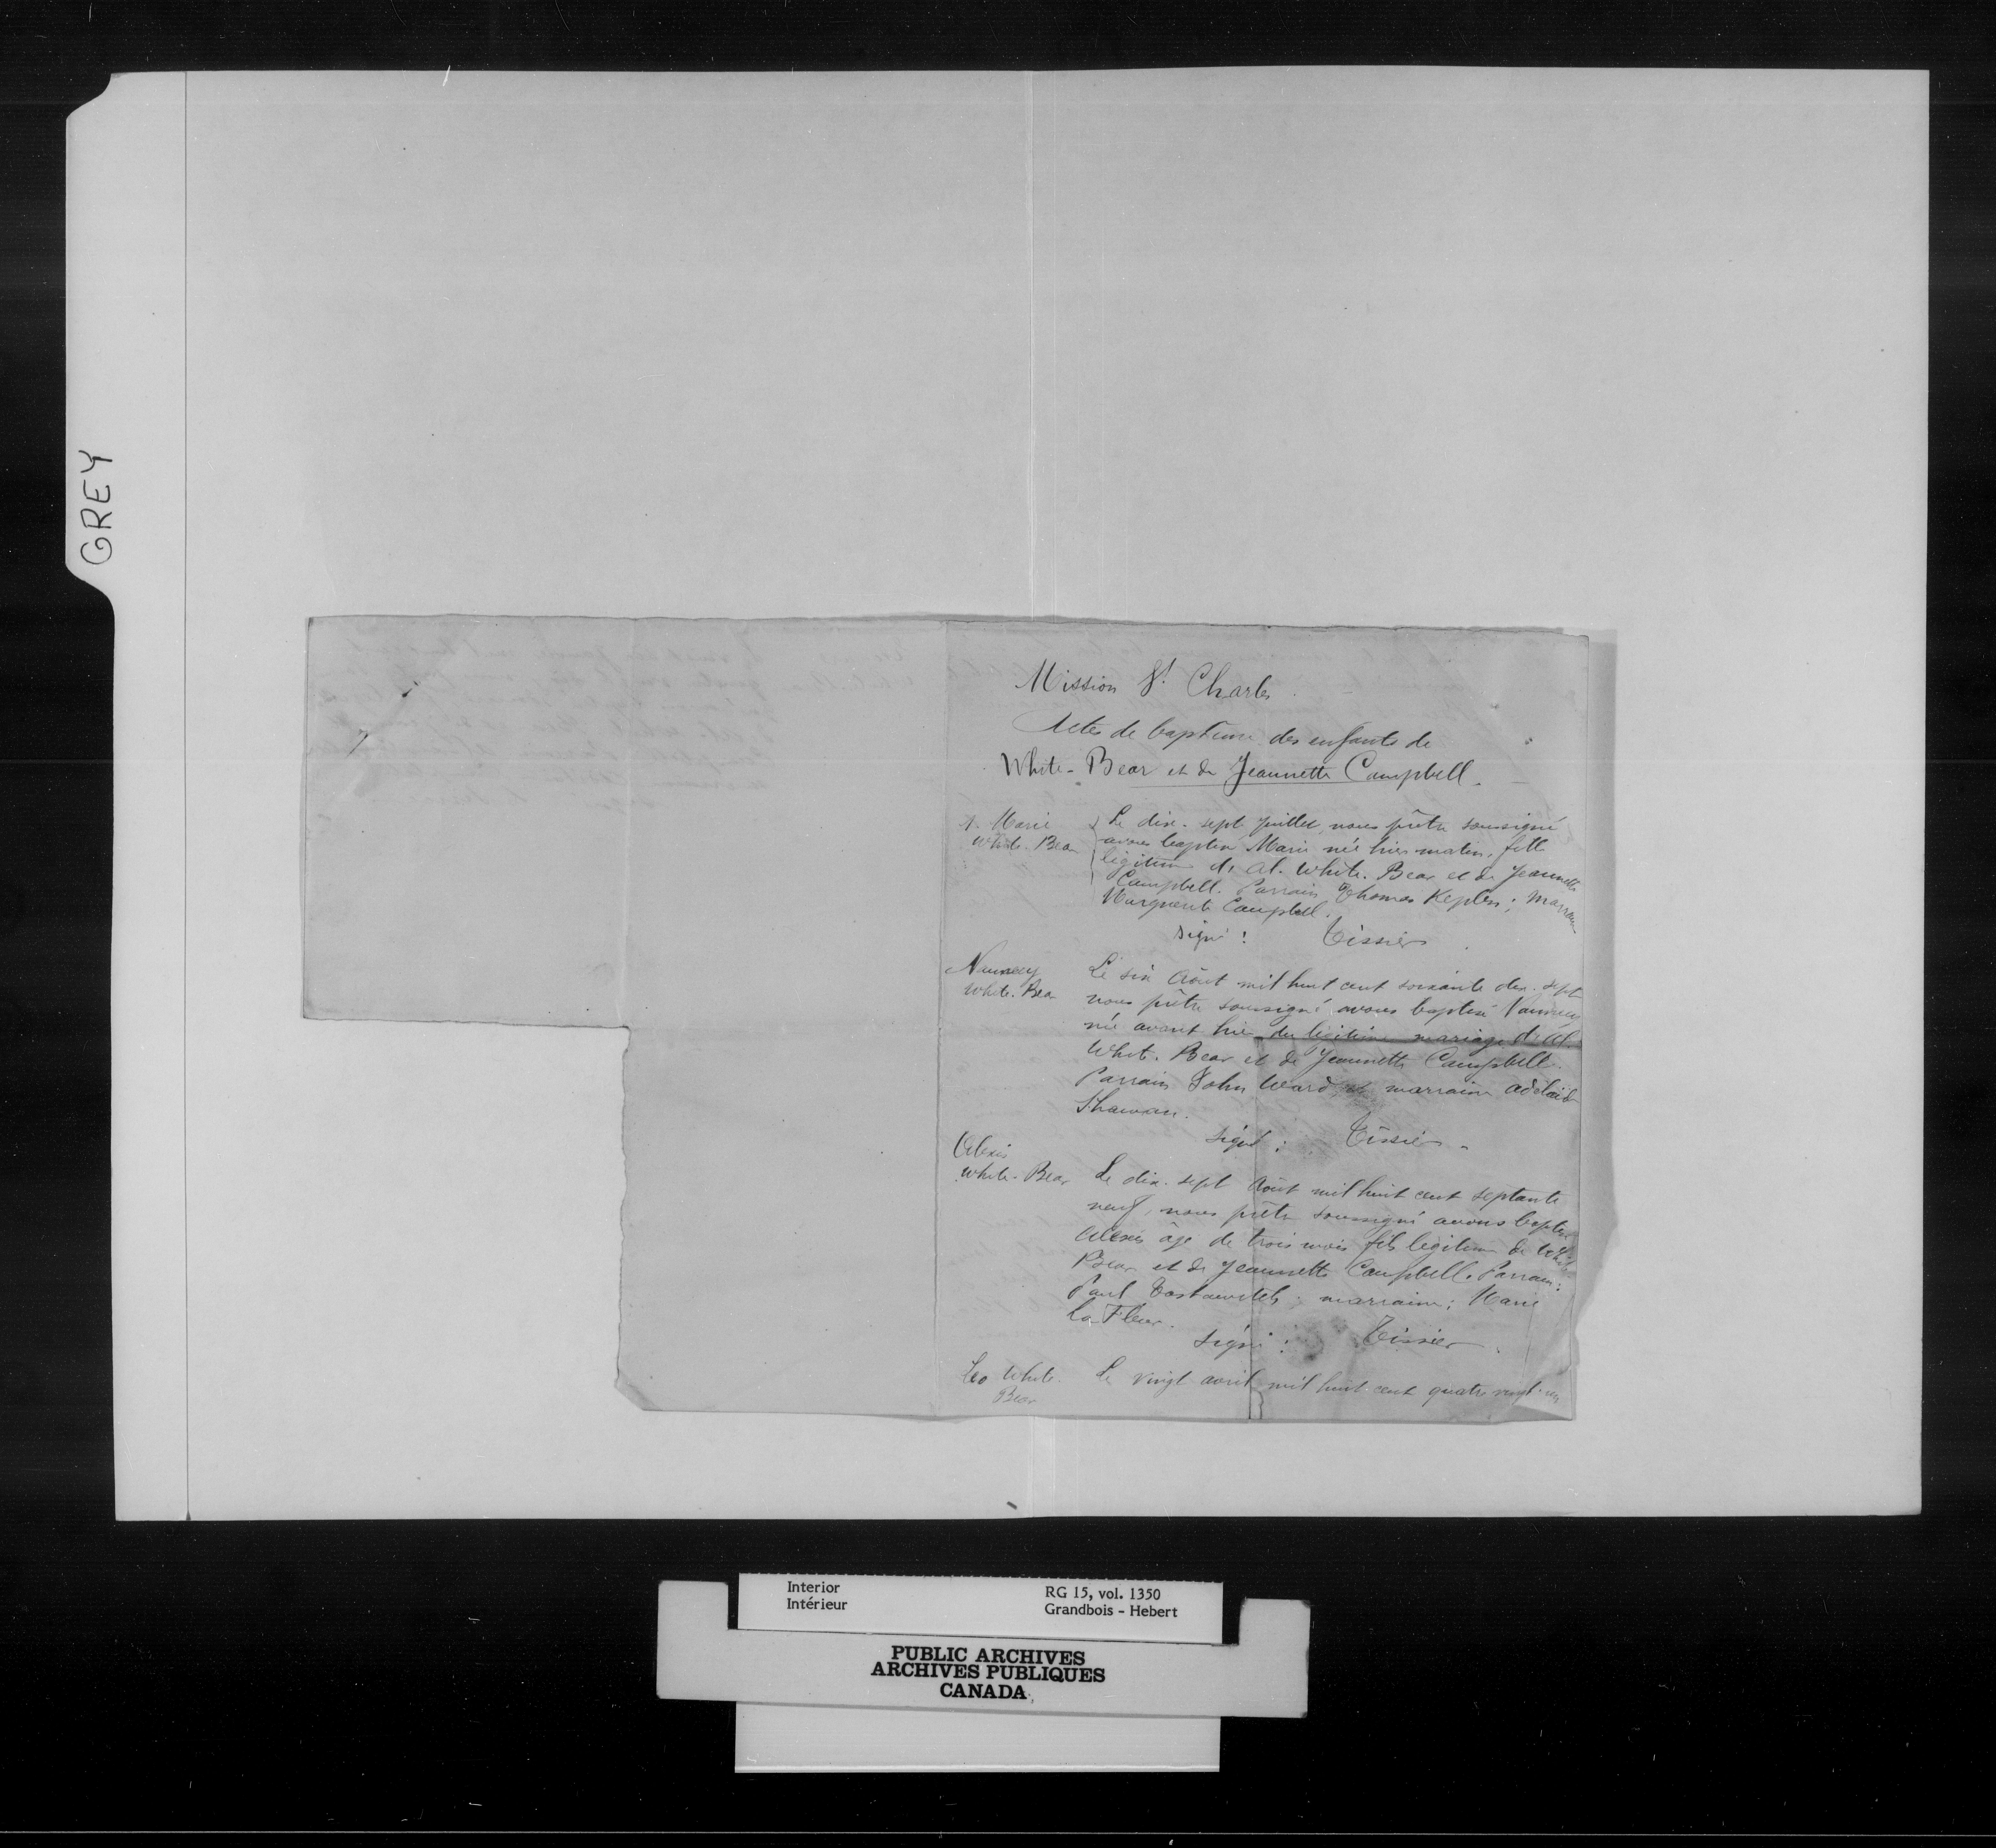 GREY
Mission St Charles
Actes de baptême des enfants de
White-Bear et de Jeannette Campbell.
1. Marie
White-Bear
Le dix-sept Juillet, nous prêtre soussigné
avons baptisé Marie née hier matin, fille
légitime de Al. White-Bear et de Jeannette
Campbell. Parrain Thomas ; Marraine
Marguerite Campbell.
signé : Tissier
Nancy
White-Bear
Le six Août mil huit cent soixante dix-sept
nous prêtre soussigné avons baptisé
née avant hier du légitime mariage de Al.
White-Bear et de Jeannette Campbell.
Parrain John Ward, et marraine Adelaide
signé : Tissier
Alexis
White-Bear
Le dix-sept Août mil huit cent septante
neuf, nous prêtre soussigné avons baptisé
Alexis âgé de trois mois fils légitime de White
Bear et de Jeannette Campbell. Parrain :
Paul ; marraine ; Marie
La Fleur.
signé : Tissier
Leo White
Bear
Le vingt avril mil huit cent quatre vingt-un
Interior
Intérieur
RG 15, vol. 1350
Grandbois - Hebert
PUBLIC ARCHIVES
ARCHIVES PUBLIQUES
CANADA